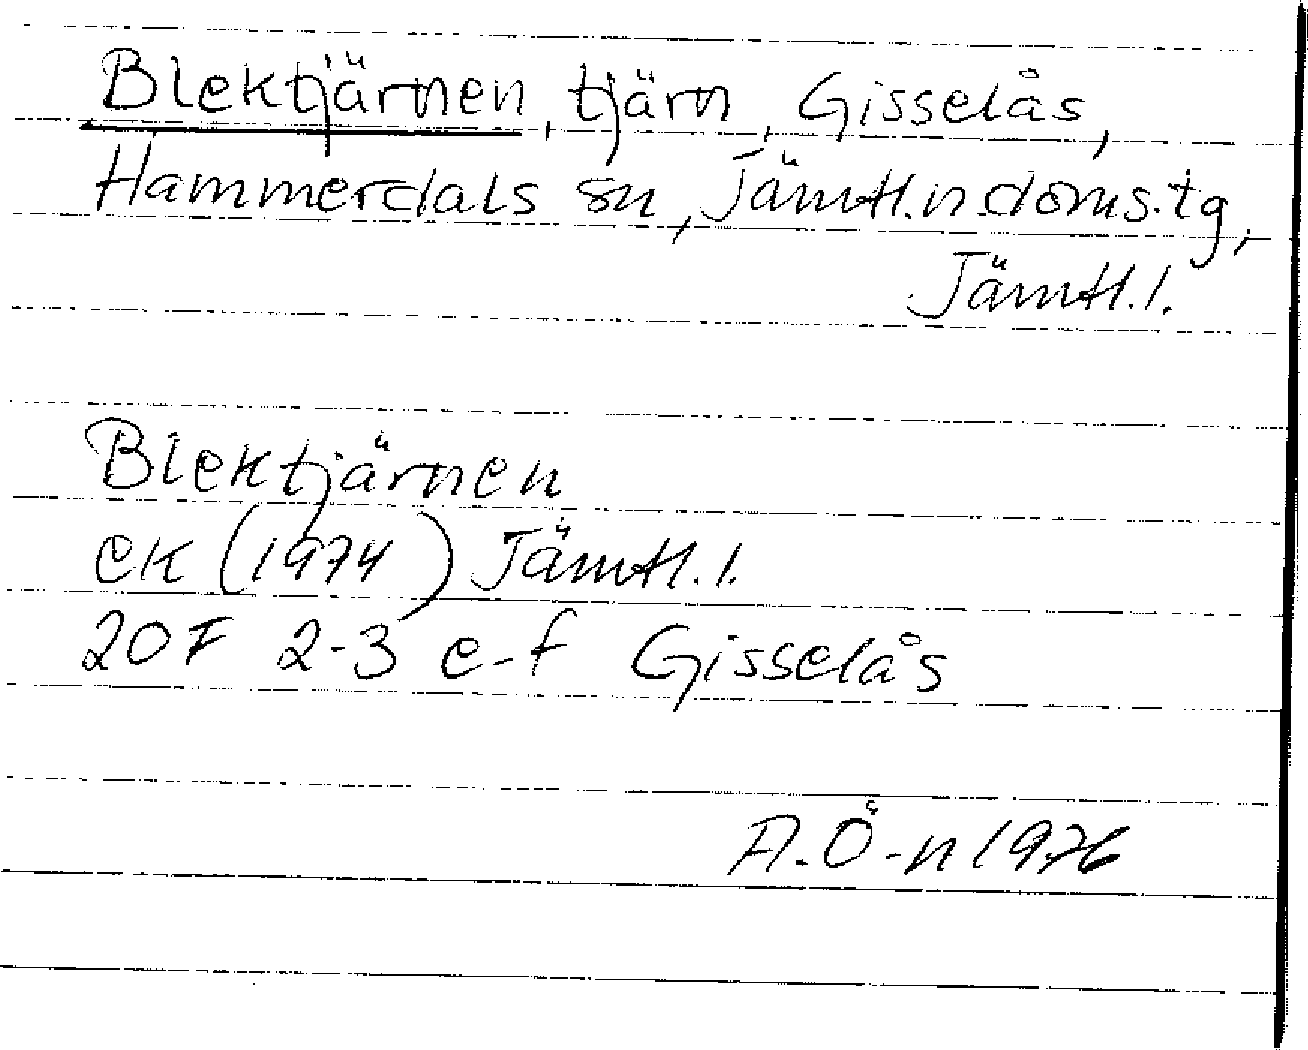 Blektjärnen, tjärn, Gisselås,
Hammerdals sn, Jämtl.n.doms.tg,
Jämtl.l.
Blektjärnen
ek (1974) Jämtl.l.
20F 2-3 e-f Gisselås
A.Ö-n 1976